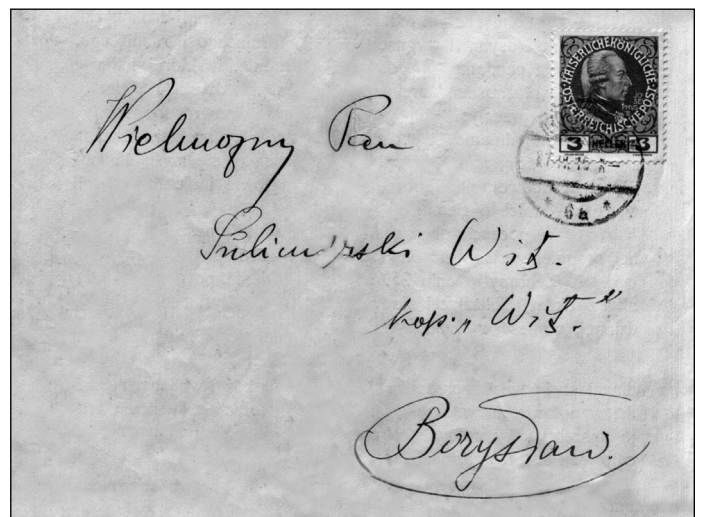 KAISERLICHE KÖNIGLICHE ÖSTERREICHISCHE POST
3 HELLER 3
* 6a *
Wielmożny Pan
Sulimirski Wit.
kop. „Wit.”
Borysław.